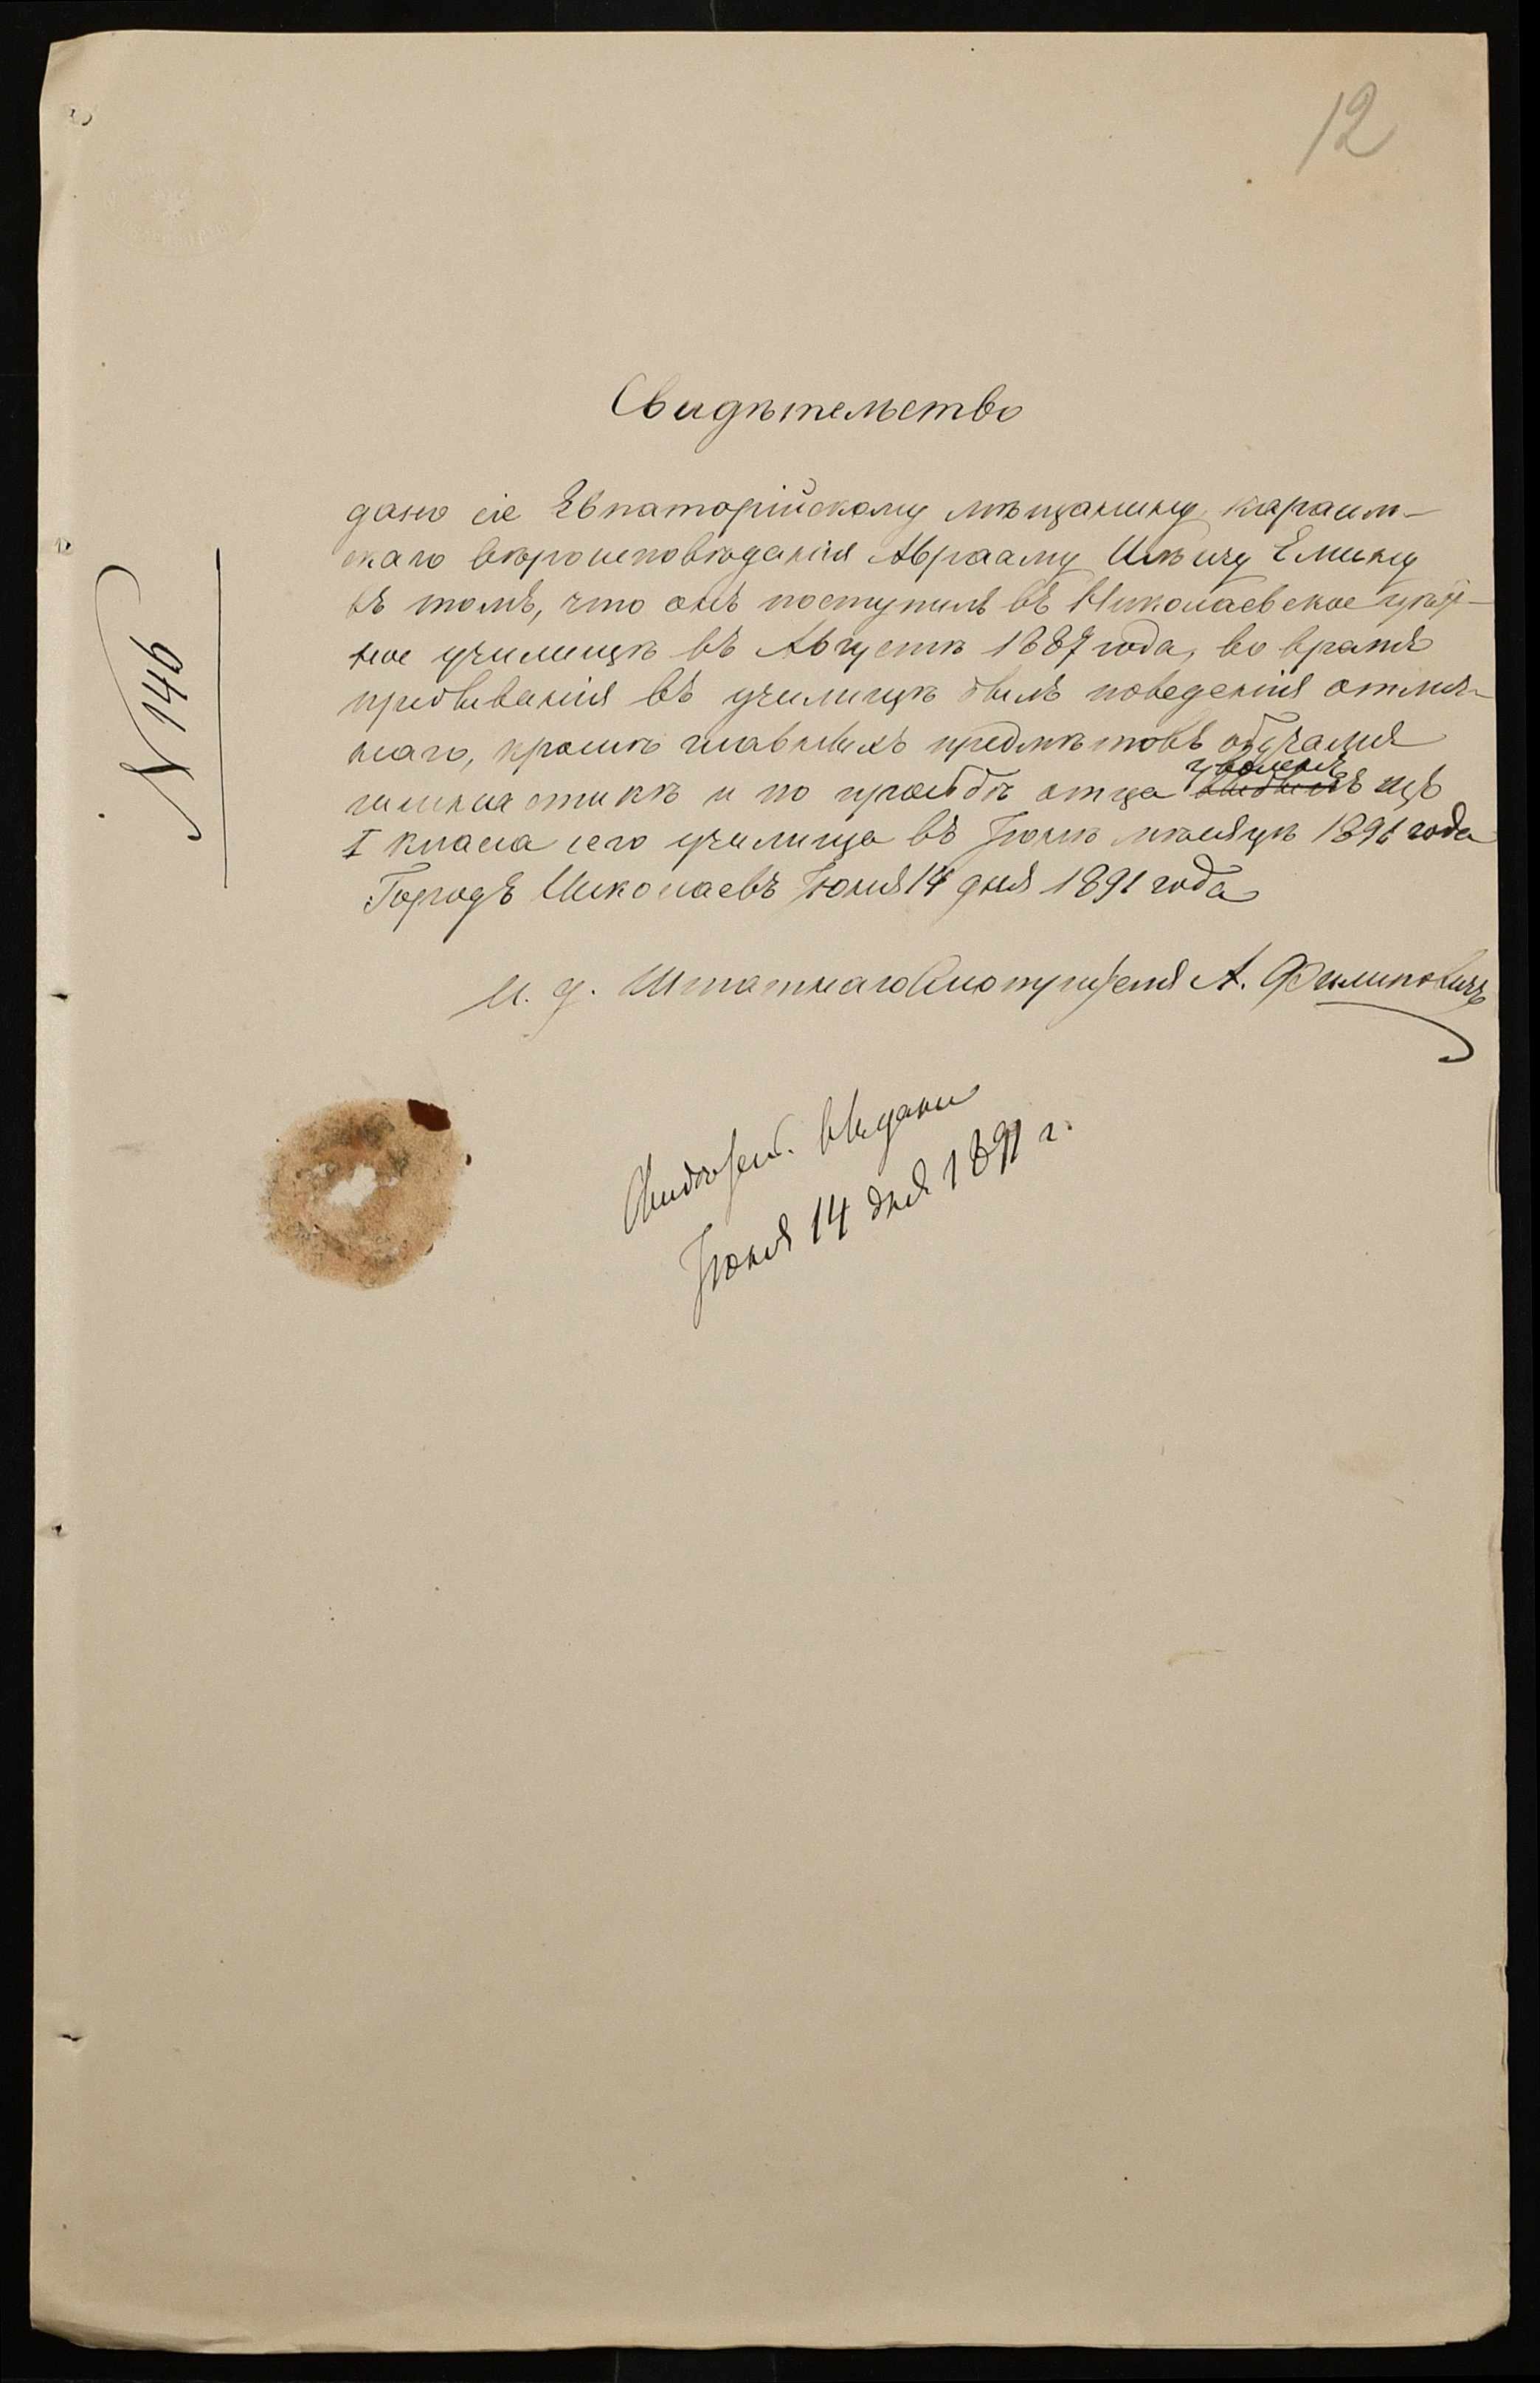 12
№ 146
Свидѣтельство
дано сіе Евпаторійскому мѣщанину караим-
скаго вѣроисповѣданія Аврааму Ильичу Емину
въ томъ, что онъ поступилъ въ Николаевское уѣзд-
ное училищѣ въ Августѣ 1887 года, во время
пребыванія въ училищѣ былъ поведенія отлич-
наго, кромѣ главныхъ предметовъ обучался
гимнастикѣ и по просьбѣ отца уволенъ изъ
I класса сего училища въ Іюнѣ мѣсяцѣ 1891 года
Городъ Николаевъ Іюня 14 дня 1891 года
И. д. Штатнаго Смотрителя А. Филиповичъ
выдано
Іюня 14 дня 1891 г.